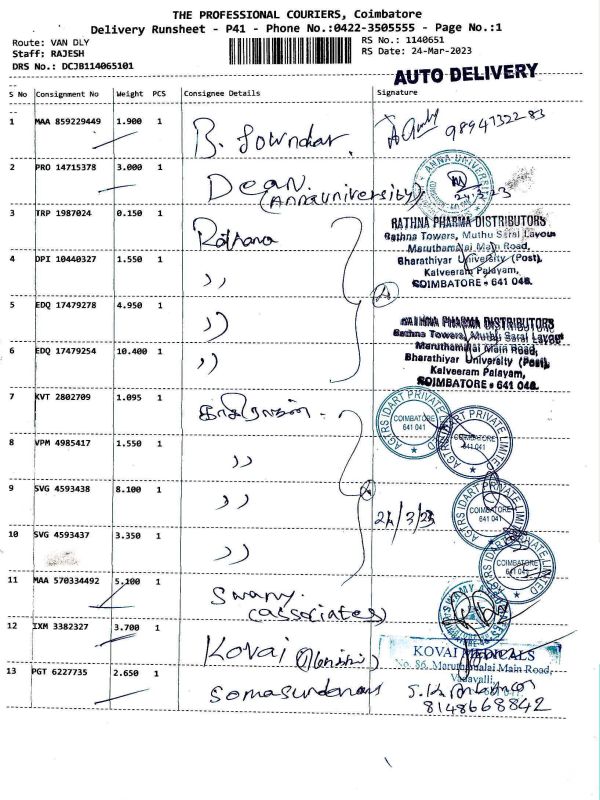 THE PROFESSIONAL COURIERS, Coimbatore
Delivery Runsheet - P41 - Phone No.:0422-3505555 - Page No.:1
Route: VAN DLY
Staff: RAJESH
DRS No.: DCJB114065101
RS No.: 1140651
RS Date: 24-Mar-2023
AUTO DELIVERY
S No Consignment No Weight PCS Consignee Details Signature
1 MAA 859229449 1.900 1
9894732283
2 PRO 14715378 3.000 1 Dean
(Anna university)
ANNA UNIVERSITY
3 TRP 1987024 0.150 1 Rathana
RATHNA PHARMA DISTRIBUTORS
Rathna Towers, Muthu Sarai Layout
Maruthamalai Main Road,
Bharathiyar University (Post),
Kalveeram Palayam,
COIMBATORE - 641 046.
4 DPI 10440327 1.550 1 ,,
5 EDQ 17479278 4.950 1 ,,
RATHNA PHARMA DISTRIBUTORS
Rathna Towers, Muthu Sarai Layout
Maruthamalai Main Road,
Bharathiyar University (Post),
Kalveeram Palayam,
COIMBATORE - 641 046.
6 EDQ 17479254 10.400 1 ,,
7 KVT 2802709 1.095 1 காசிராஜன் -
AGTRS IDART PRIVATE LIMITED
COIMBATORE
641 041
AGTRS IDART PRIVATE LIMITED
COIMBATORE
641 041
8 VPM 4985417 1.550 1 ,,
9 SVG 4593438 8.100 1 ,,
24/3/23
AGTRS IDART PRIVATE LIMITED
COIMBATORE
641 041
10 SVG 4593437 3.350 1 ,,
AGTRS IDART PRIVATE LIMITED
COIMBATORE
641 041
11 MAA 570334492 5.100 1 Swamy
(associates)
12 IXM 3382327 3.700 1 Kovai
KOVAI MEDICALS
No. 86, Maruthamalai Main Road,
Vadavalli,
13 PGT 6227735 2.650 1 Somasundaram
8148668842